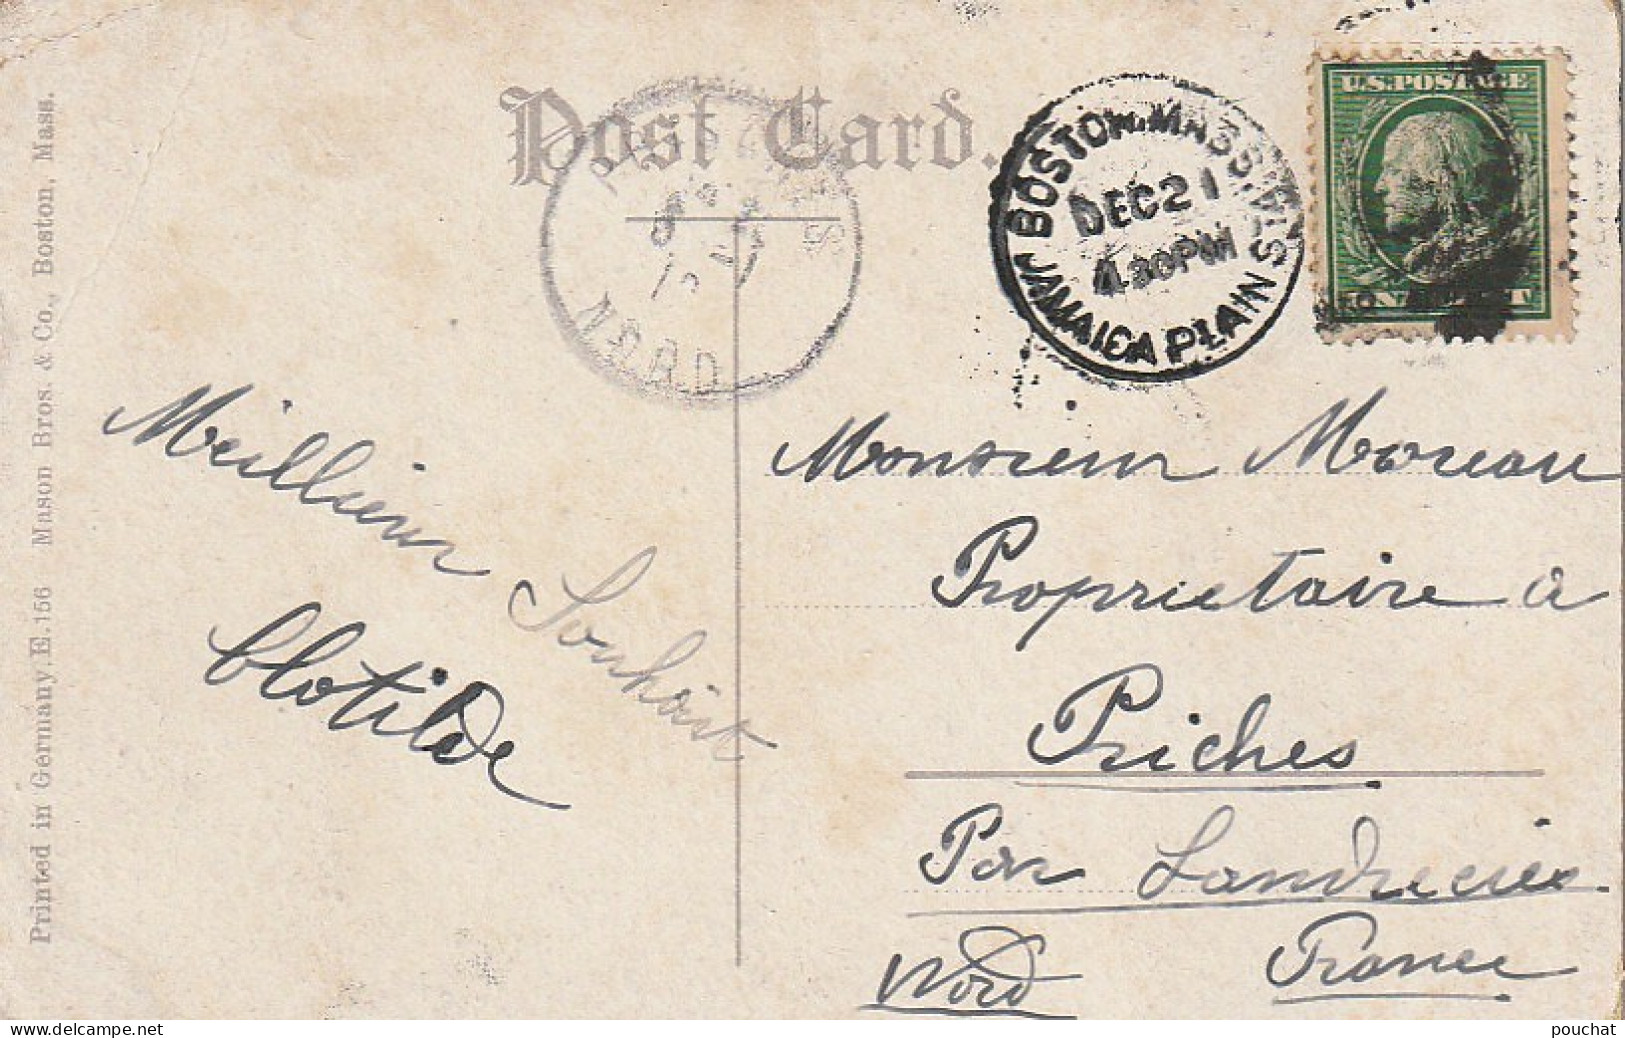 Post Card.
BOSTON. MASS.
DEC 21
4.30 PM
JAMAICA PLAIN STA.
U.S. POSTAGE
NORD
Meillieur Souhait
Clotilde
Monsieur Moreau
Proprietaire a
Priches
Par Landrecies
Nord France
Printed in Germany. E. 156 Mason Bros. & Co., Boston, Mass.
pouchat